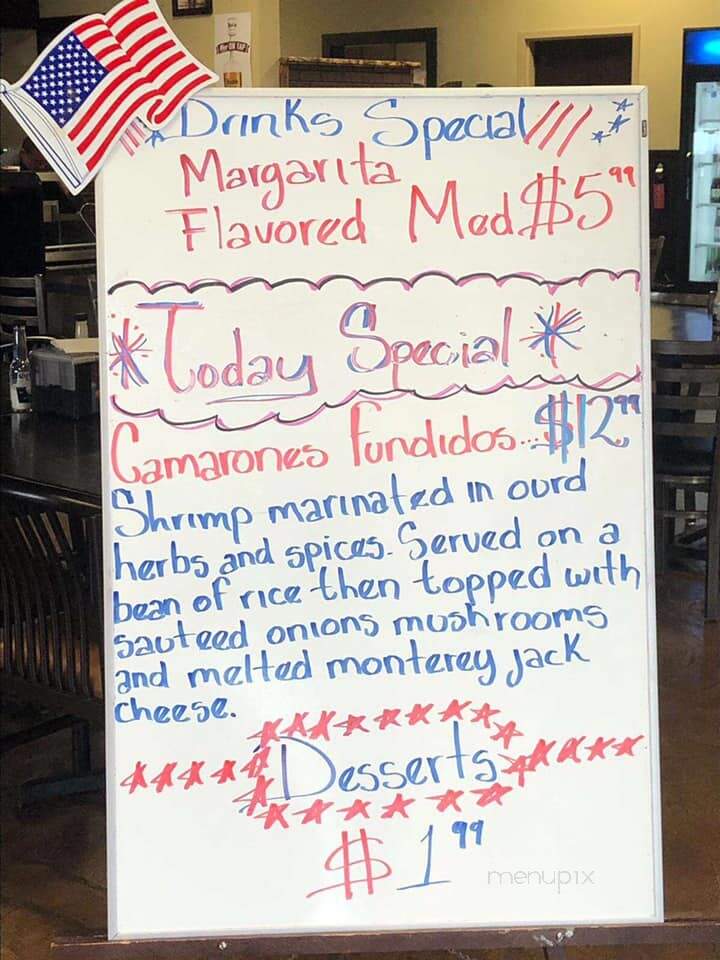 Drinks Special
Margarita
Flavored Med $5.99
Today Special
Camarones Fundidos... $12.99
Shrimp marinated in ourd
herbs and spices. Served on a
bean of rice then topped with
sauteed onions mushrooms
and melted monterey jack
cheese.
Desserts
$1.99
menupix